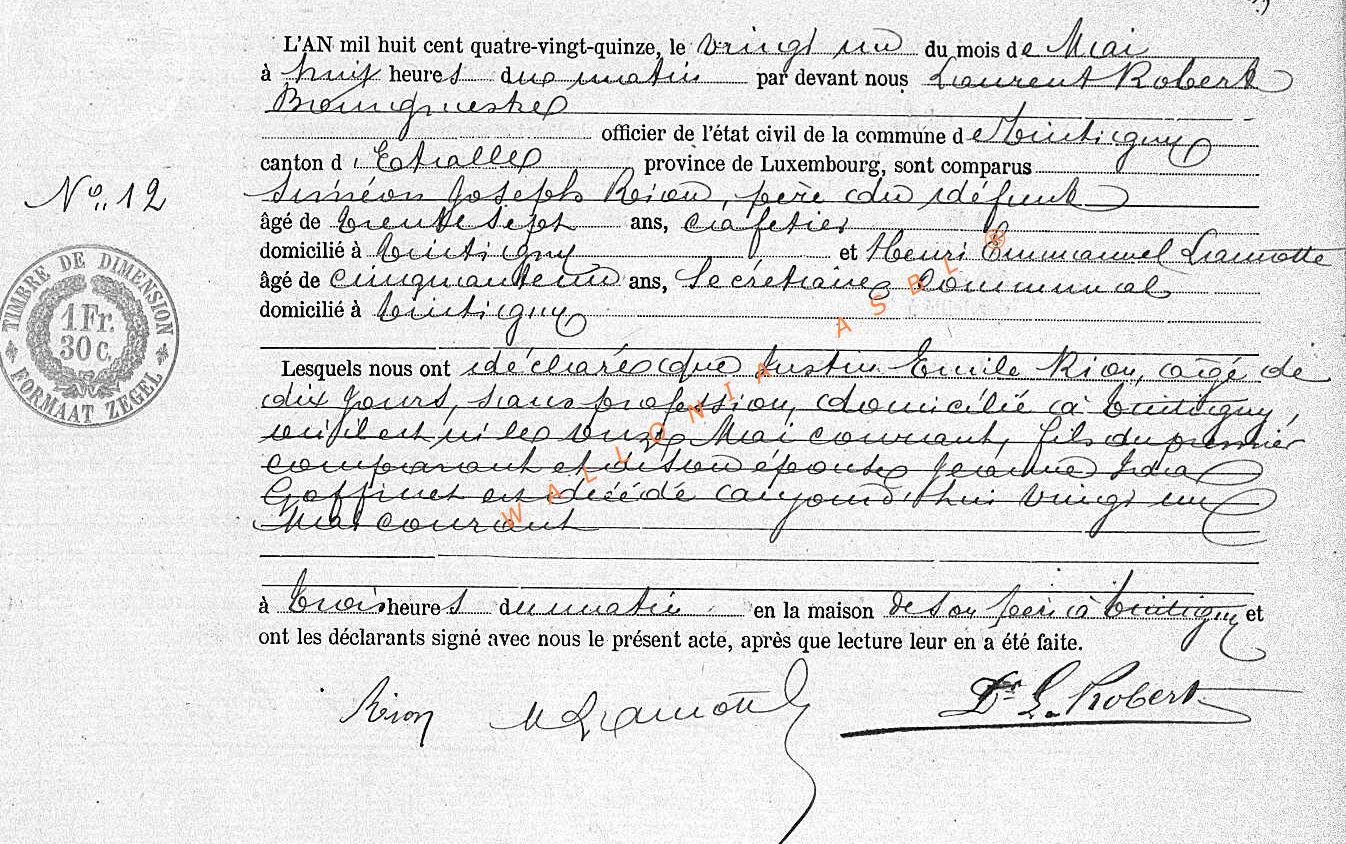 L'AN mil huit cent quatre-vingt-quinze, le vingt un du mois de Mai
à huit heures du matin par devant nous Laurent Robert
Bourgmestre
officier de l'état civil de la commune de Tintigny
canton d'Etalle province de Luxembourg, sont comparus
Siméon Joseph Rion, père du défunt
N° 12
âgé de trente sept ans, cafetier
domicilié à Tintigny et Henri Emmanuel Lamotte
âgé de cinquante un ans, Secrétaire Communal
domicilié à Tintigny
Lesquels nous ont déclaré que Justin Emile Rion, âgé de
dix jours, sans profession, domicilié à Tintigny,
où il est né le onze Mai courant, fils du premier
comparant et de son épouse Jeanne Ida
Goffinet est décédé aujourd'hui vingt un
Mai courant
à trois heures du matin en la maison de son père à Tintigny et
ont les déclarants signé avec nous le présent acte, après que lecture leur en a été faite.
Rion Lamotte Dr L. Robert
TIMBRE DE DIMENSION
1 Fr.
30 c.
FORMAAT ZEGEL
WALLONIA ASBL ®